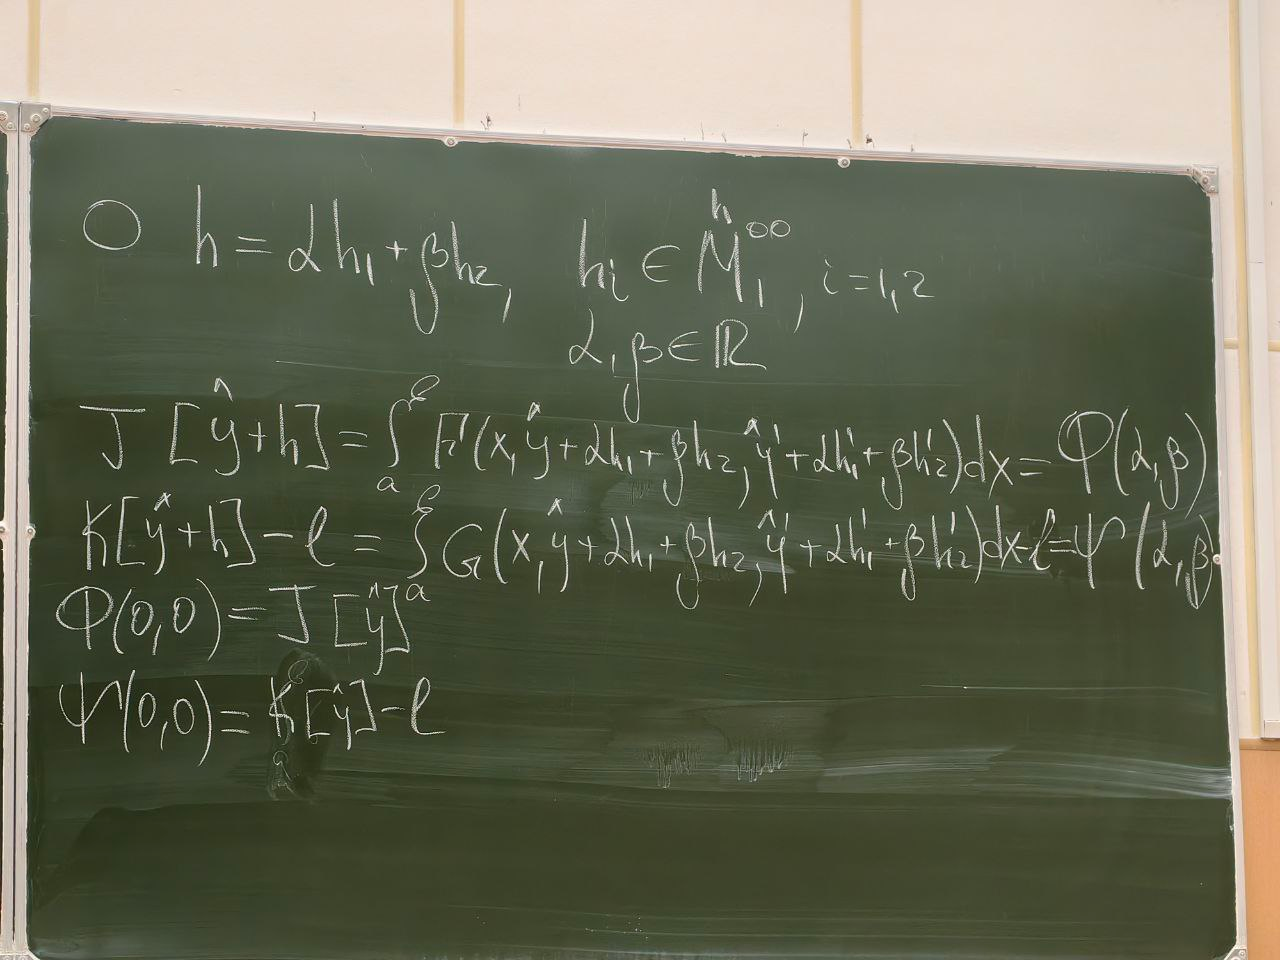 ○ h = αh₁ + βh₂, hᵢ ∈ M̊₁⁰⁰, i = 1, 2
α, β ∈ ℝ
J [ŷ + h] = ∫ₐᵇ F(x, ŷ + αh₁ + βh₂, ŷ' + αh₁' + βh₂')dx = Φ(α, β)
K[ŷ + h] − l = ∫ₐᵇ G(x, ŷ + αh₁ + βh₂, ŷ' + αh₁' + βh₂')dx − l = Ψ(α, β)
Φ(0,0) = J [ŷ]
Ψ(0,0) = K[ŷ] − l